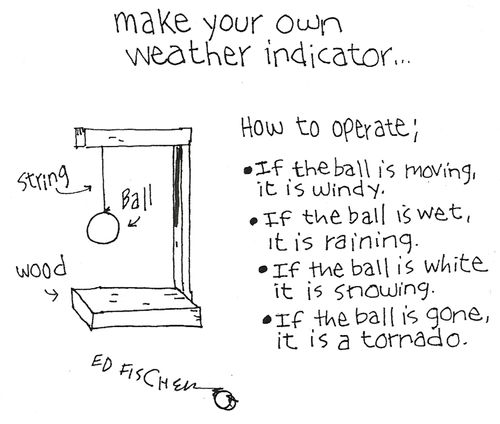 make your own
weather indicator...
How to operate;
string
Ball
wood
• If the ball is moving,
it is windy.
• If the ball is wet,
it is raining.
• If the ball is white
it is snowing.
• If the ball is gone,
it is a tornado.
ED FISCHER